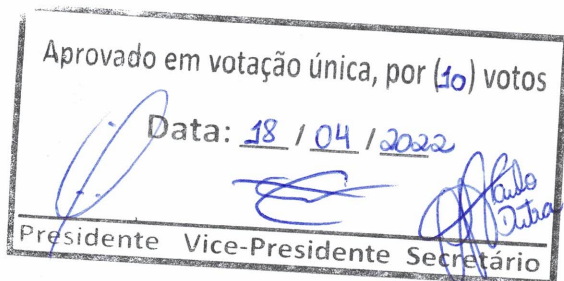 Aprovado em votação única, por (10) votos
Data: 18 / 04 / 2022
Paulo
Dutra
Presidente Vice-Presidente Secretário